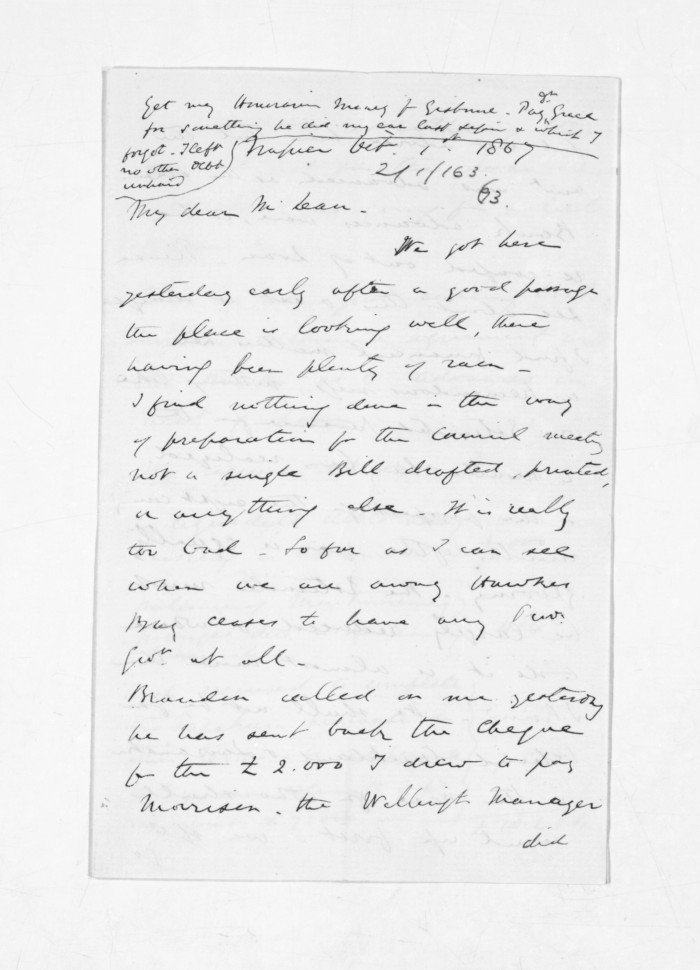 Get my Honorarium Money of Gisborne. Pay Dr Grace
for something he did my ear last session & which I
forgot. I left
no other debt
unpaid
Napier Oct. 1st 1867
2/1/163.
63.
My dear McLean.
We got here
yesterday early after a good passage
the place is looking well, there
having been plenty of rain -
I find nothing done in the way
of preparation for the Council meeting
not a single Bill drafted, printed,
or anything else. It is really
too bad. So far as I can see
when we are away Hawkes
Bay ceases to have any Prov.
Govt. at all.
called on me yesterday
he has sent back the Cheque
for the £2.000 I drew to pay
Morrison. the Wellingtn Manager
did